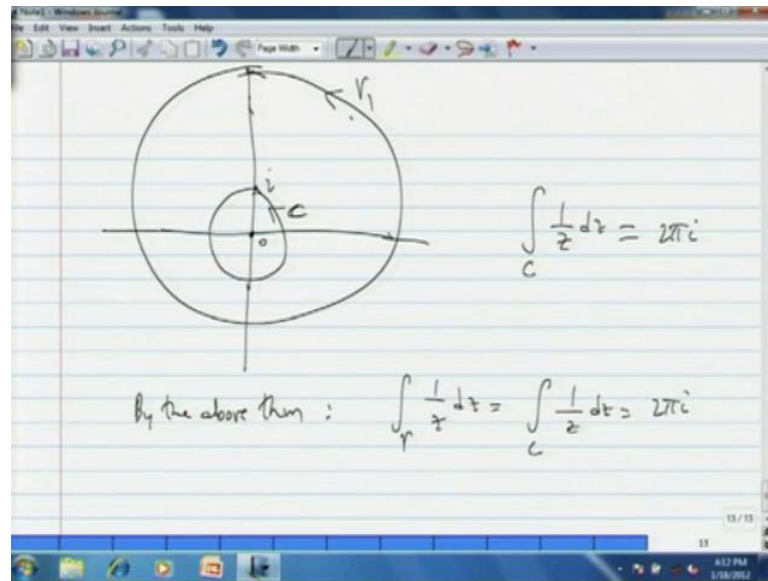 Note1 - Windows Journal
File Edit View Insert Actions Tools Help
Page Width
γ₁
i
C
0
∫_C 1/z dz = 2πi
By the above thm : ∫_γ 1/z dz = ∫_C 1/z dz = 2πi
13/13
13
4:52 PM
1/18/2012